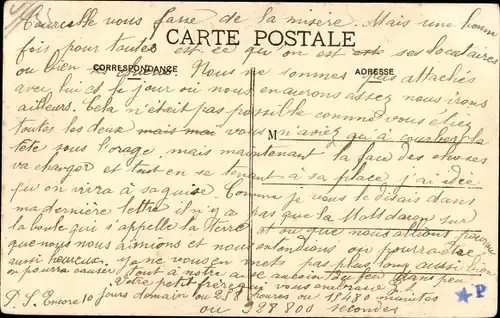 vous fasse de la misère. Mais une bonne
CARTE POSTALE
fois pour toutes est ce qu'on est ses locataires
ou bien Nous ne sommes pas attachés
CORRESPONDANCE
ADRESSE
avec lui et le jour où nous en aurons assez nous irons
ailleurs. Cela n'était pas possible comme vous étiez
toutes les deux mais mai vous n'aviez qu'à courber la
M
tête sous l'orage, mais maintenant la face des choses
va changer et tout en se tenant à sa place j'ai idée
qu'on vivra à sa guise. Comme je vous le disais dans
ma dernière lettre il n'y a pas que la sur
la boule qui s'appelle la Terre et ou que nous allions pourvu
que nous nous aimions et nous entendions on pourra être
aussi heureux. Je ne vous en mets pas plus long aussi bien
on pourra causer tout à notre aise au coin du feu dans peu
Votre petit frère qui vous embrasse
P.S. Encore 10 jours demain ou 258 heures ou 15480 minutes
ou 928 800 secondes
P